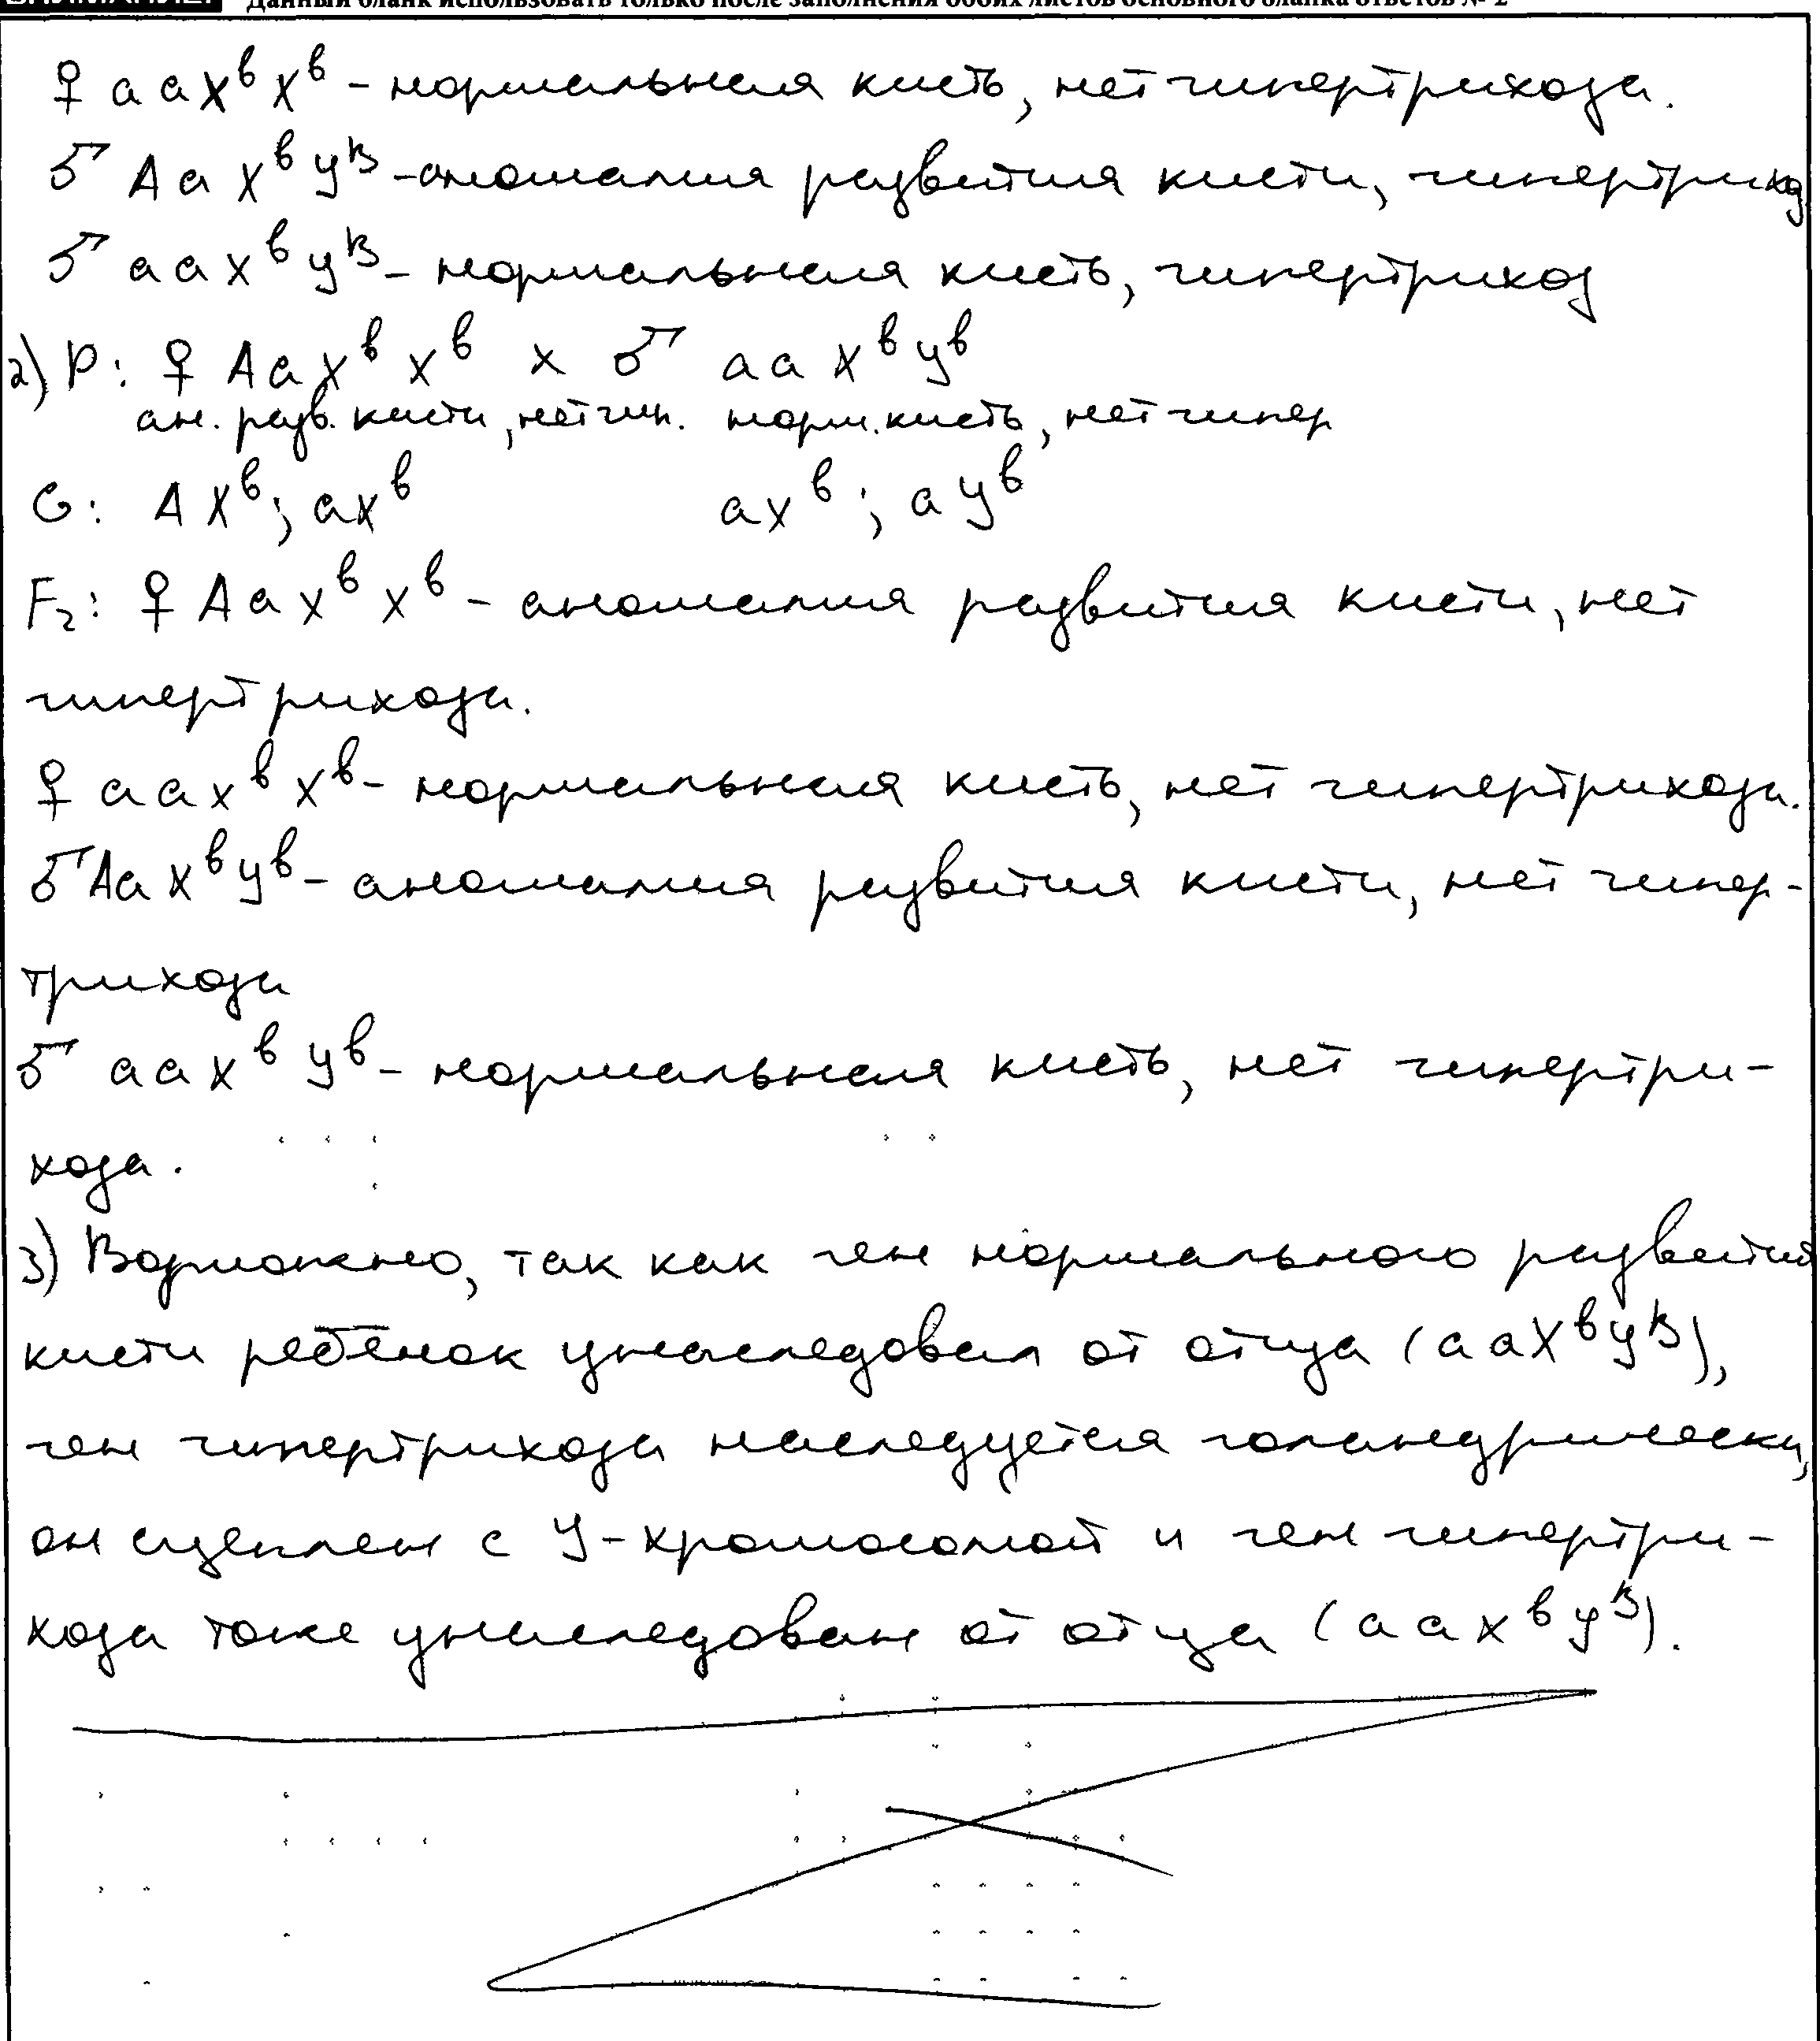 Данный бланк использовать только после заполнения обоих листов основного бланка ответов № 2
♀ ааXᵇXᵇ - нормальная кисть, нет гипертрихоза.
♂ АаXᵇYᴮ - аномалия развития кисти, гипертрихоз
♂ ааXᵇYᴮ - нормальная кисть, гипертрихоз
2) P: ♀ АаXᵇXᵇ x ♂ ааXᵇYᵇ
ан. разв. кисти, нет гип. норм. кисть, нет гипер
G: АXᵇ; аXᵇ аXᵇ; аYᵇ
F₂: ♀ АаXᵇXᵇ - аномалия развития кисти, нет
гипертрихоза.
♀ ааXᵇXᵇ - нормальная кисть, нет гипертрихоза.
♂ АаXᵇYᵇ - аномалия развития кисти, нет гипер-
трихоза
♂ ааXᵇYᵇ - нормальная кисть, нет гипертри-
хоза.
3) Возможно, так как ген нормального развития
кисти ребёнок унаследовал от отца (ааXᵇYᴮ),
ген гипертрихоза наследуется голандрически,
он сцеплен с Y-хромосомой и ген гипертри-
хоза тоже унаследован от отца (ааXᵇYᴮ).